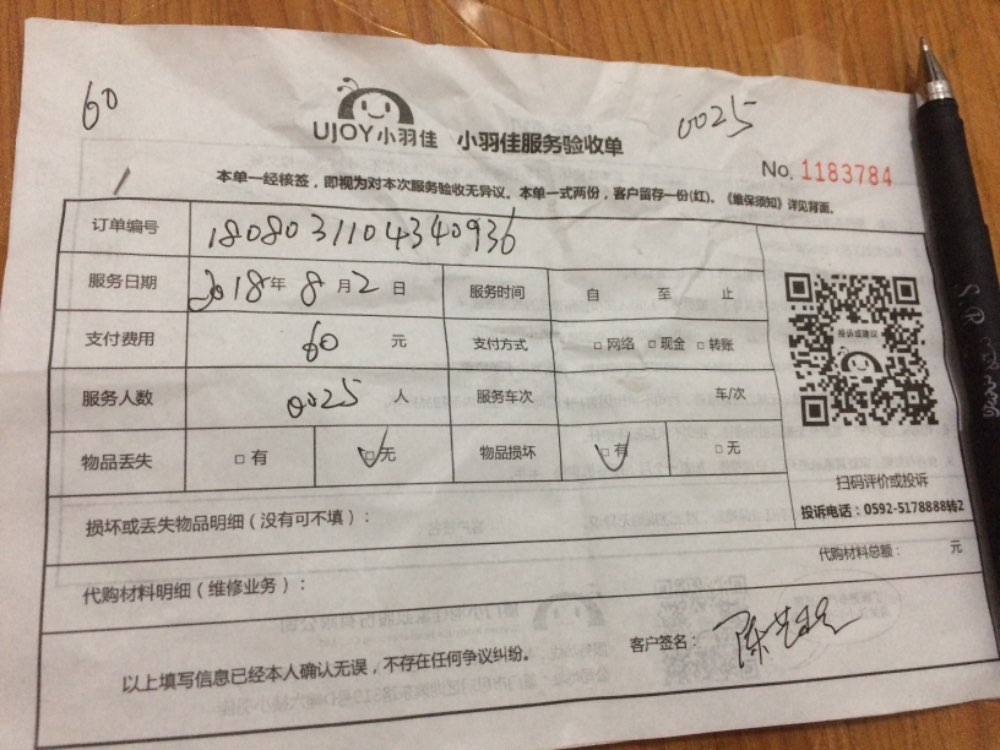 60
0025
UJOY小羽佳 小羽佳服务验收单
No. 1183784
本单一经核签，即视为对本次服务验收无异议。本单一式两份，客户留存一份(红)。《维保须知》详见背面。
订单编号 1808031104340936
服务日期 2018年8月2日 服务时间 自 至 止
支付费用 60 元 支付方式 □网络 □现金 □转账
服务人数 0025 人 服务车次 车/次
物品丢失 □有 □无 物品损坏 □有 □无
投诉或建议
扫码评价或投诉
投诉电话：0592-5178888转2
损坏或丢失物品明细（没有可不填）：
代购材料明细（维修业务）： 代购材料总额： 元
以上填写信息已经本人确认无误，不存在任何争议纠纷。 客户签名：